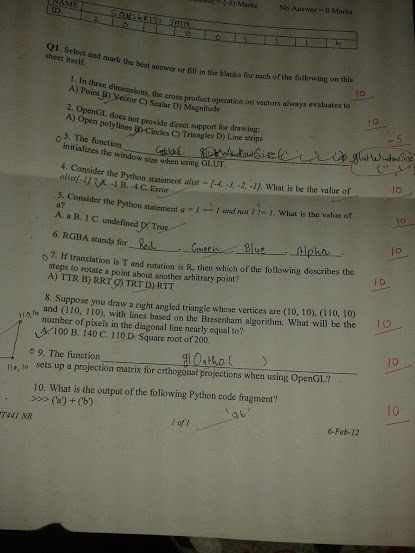 (-5) Marks No Answer = 0 Marks
NAME SANSKRITI JAIN
ID 2 0 1 0 0 1 1 1 4
Q1. Select and mark the best answer or fill in the blanks for each of the following on this
sheet itself.
1. In three dimensions, the cross product operation on vectors always evaluates to
A) Point B) Vector C) Scalar D) Magnitude
10
2. OpenGL does not provide direct support for drawing:
A) Open polylines B) Circles C) Triangles D) Line strips
10
3. The function glutWindowSize( , , , ) glutWindowSize
initializes the window size when using GLUT.
-5
4. Consider the Python statement alist = [-4, -3, -2, -1]. What is be the value of
alist[-1]? A. -1 B. -4 C. Error
10
5. Consider the Python statement a = 1 == 1 and not 1 != 1. What is the value of
a?
A. a B. 1 C. undefined D. True
10
6. RGBA stands for Red, Green, Blue, Alpha
10
7. If translation is T and rotation is R, then which of the following describes the
steps to rotate a point about another arbitrary point?
A) TTR B) RRT C) TRT D) RTT
10
8. Suppose you draw a right angled triangle whose vertices are (10, 10), (110, 10)
and (110, 110), with lines based on the Bresenham algorithm. What will be the
number of pixels in the diagonal line nearly equal to?
A. 100 B. 140 C. 110 D. Square root of 200.
10
110, 110
110, 10
9. The function glOrtho( )
sets up a projection matrix for orthogonal projections when using OpenGL?
10
10. What is the output of the following Python code fragment?
>>> ('a') + ('b')
'ab'
10
IT441 NR 1 of 1 6-Feb-12